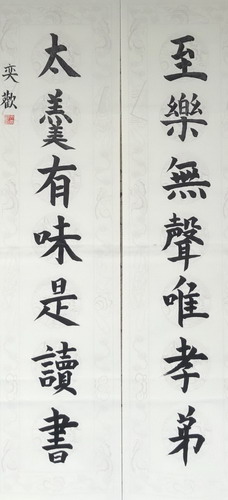 至樂無聲唯孝弟
太羹有味是讀書
奕歡